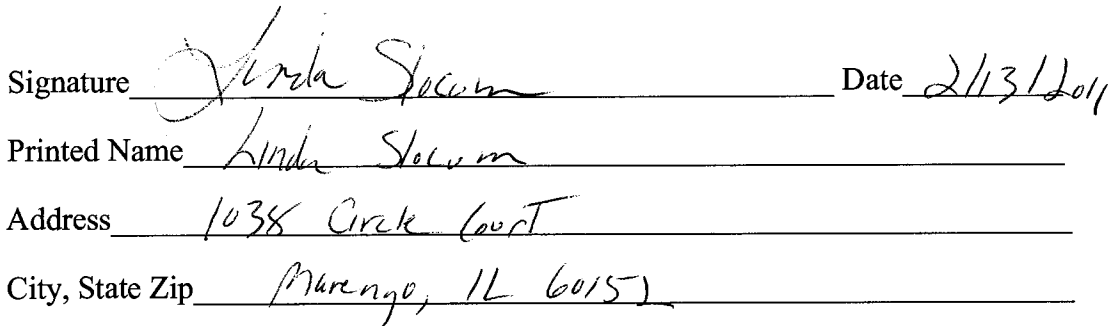 Signature Linda Slocum Date 2/13/2011
Printed Name Linda Slocum
Address 1038 Circle Court
City, State Zip Marengo, IL 60152